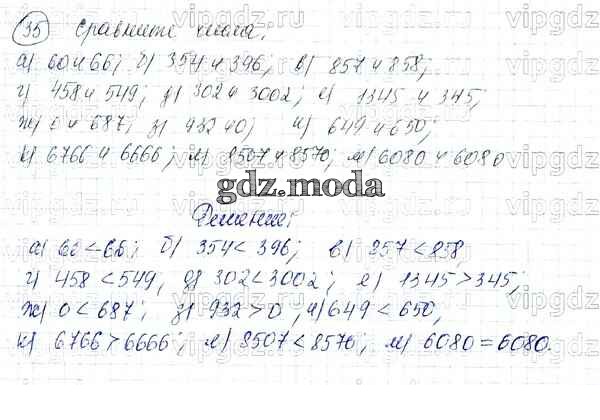 35 Сравните числа.
а) 60 и 66; б) 354 и 396; в) 857 и 858;
г) 458 и 549; д) 302 и 3002; е) 1345 и 345;
ж) 0 и 687; з) 932 и 0; и) 649 и 650;
к) 6766 и 6666; л) 8507 и 8570; м) 6080 и 6080
gdz.moda
Решение:
а) 60 < 66; б) 354 < 396; в) 857 < 858
г) 458 < 549, д) 302 < 3002; е) 1345 > 345;
ж) 0 < 687; з) 932 > 0; и) 649 < 650,
к) 6766 > 6666; л) 8507 < 8570; м) 6080 = 6080.
vipgdz.ru